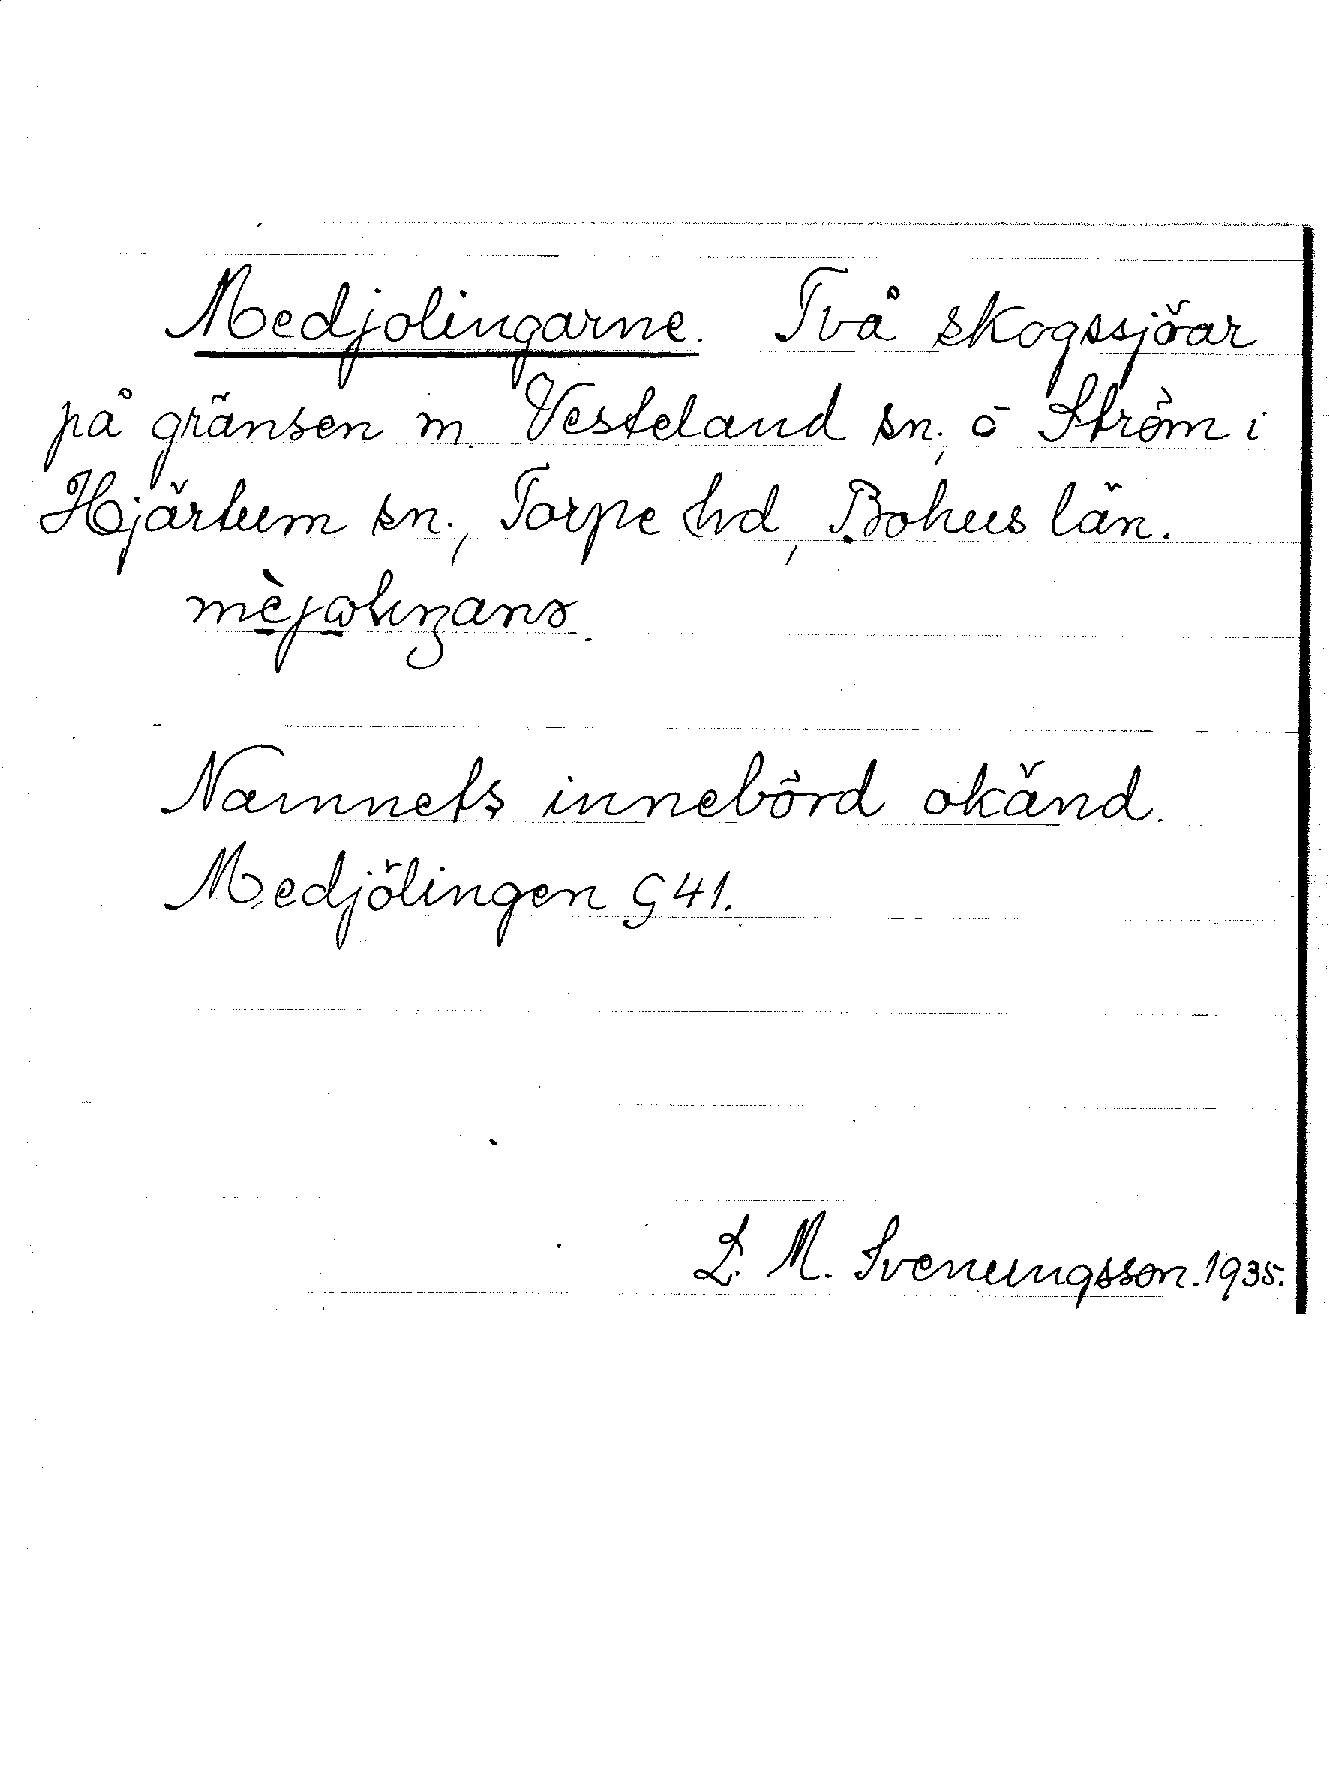 Medjolingarne. Två skogssjöar
på gränsen m. Vesteland sn., ö Ström i
Hjärtum sn., Torpe hd, Bohus län.
Namnets innebörd okänd.
Medjölingen G 41.
L. M. Svenungsson. 1935.